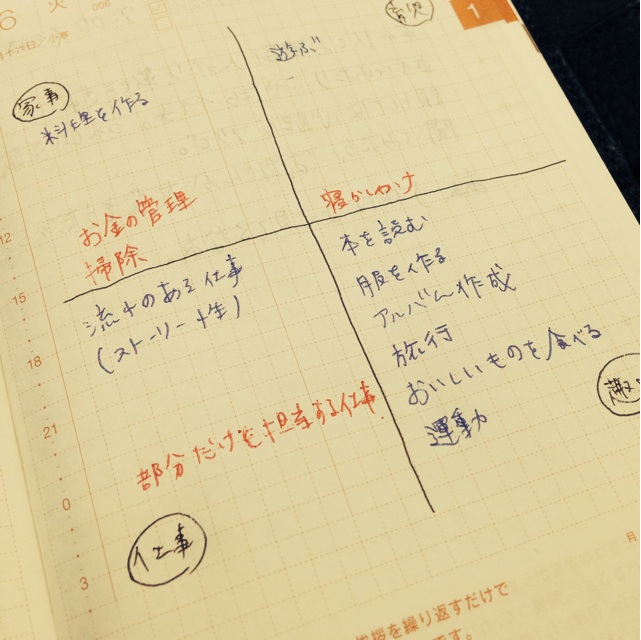 6 火
006
1
育児
遊ぶ
寝かしつけ
家事
料理を作る
お金の管理
掃除
12
15
18
21
0
3
流れのある仕事
(ストーリー性)
部分だけを担当する仕事
仕事
本を読む
服を作る
アルバム作成
旅行
おいしいものを食べる
運動
趣
月
挨拶を繰り返すだけで
です。